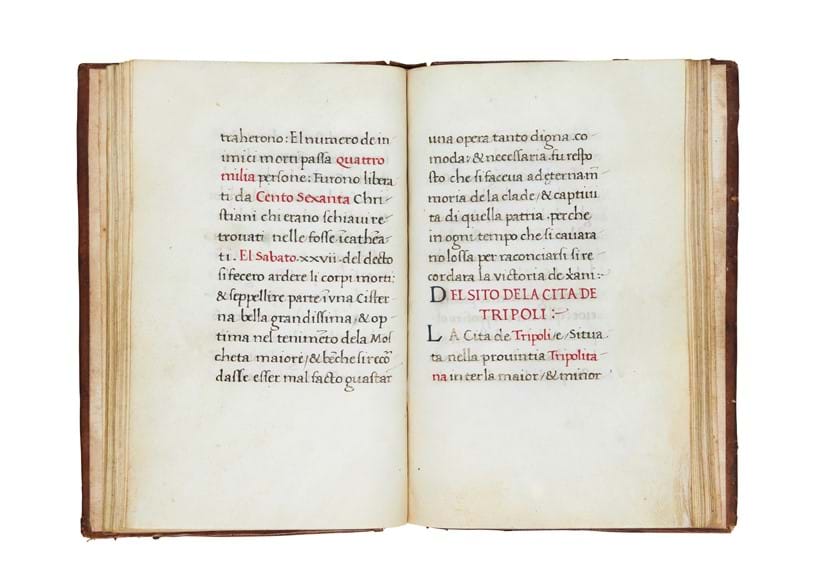 traherono: El numero de in
imici morti passa quattro
milia persone: Furono libera
ti da Cento Sexanta Chri-
stiani chi erano schiaui re-
trouati nelle fosse ĩcathẽa
ti. El Sabato .xxvii. del decto
si fecero ardere li corpi morti:
& seppellire parte ĩ una Cister
na bella grandissima, & op
tima nel tenimẽto dela Mos
cheta maiore, & bẽche si recõ
dasse esser mal facto guastar
una opera tanto digna .co
moda: & necessaria .fu respo
sto che si faceua ad eternam̃
moria de la clade, & captiui
ta di quella patria .perche
in ogni tempo che si cauara
no lossa per raconciarsi si re
cordara la victoria de xãni:-
DEL SITO DE LA CITA DE
TRIPOLI :-
LA Cita de Tripoli, e, Situa
ta nella prouintia Tripolita
na inter la maior, & minor